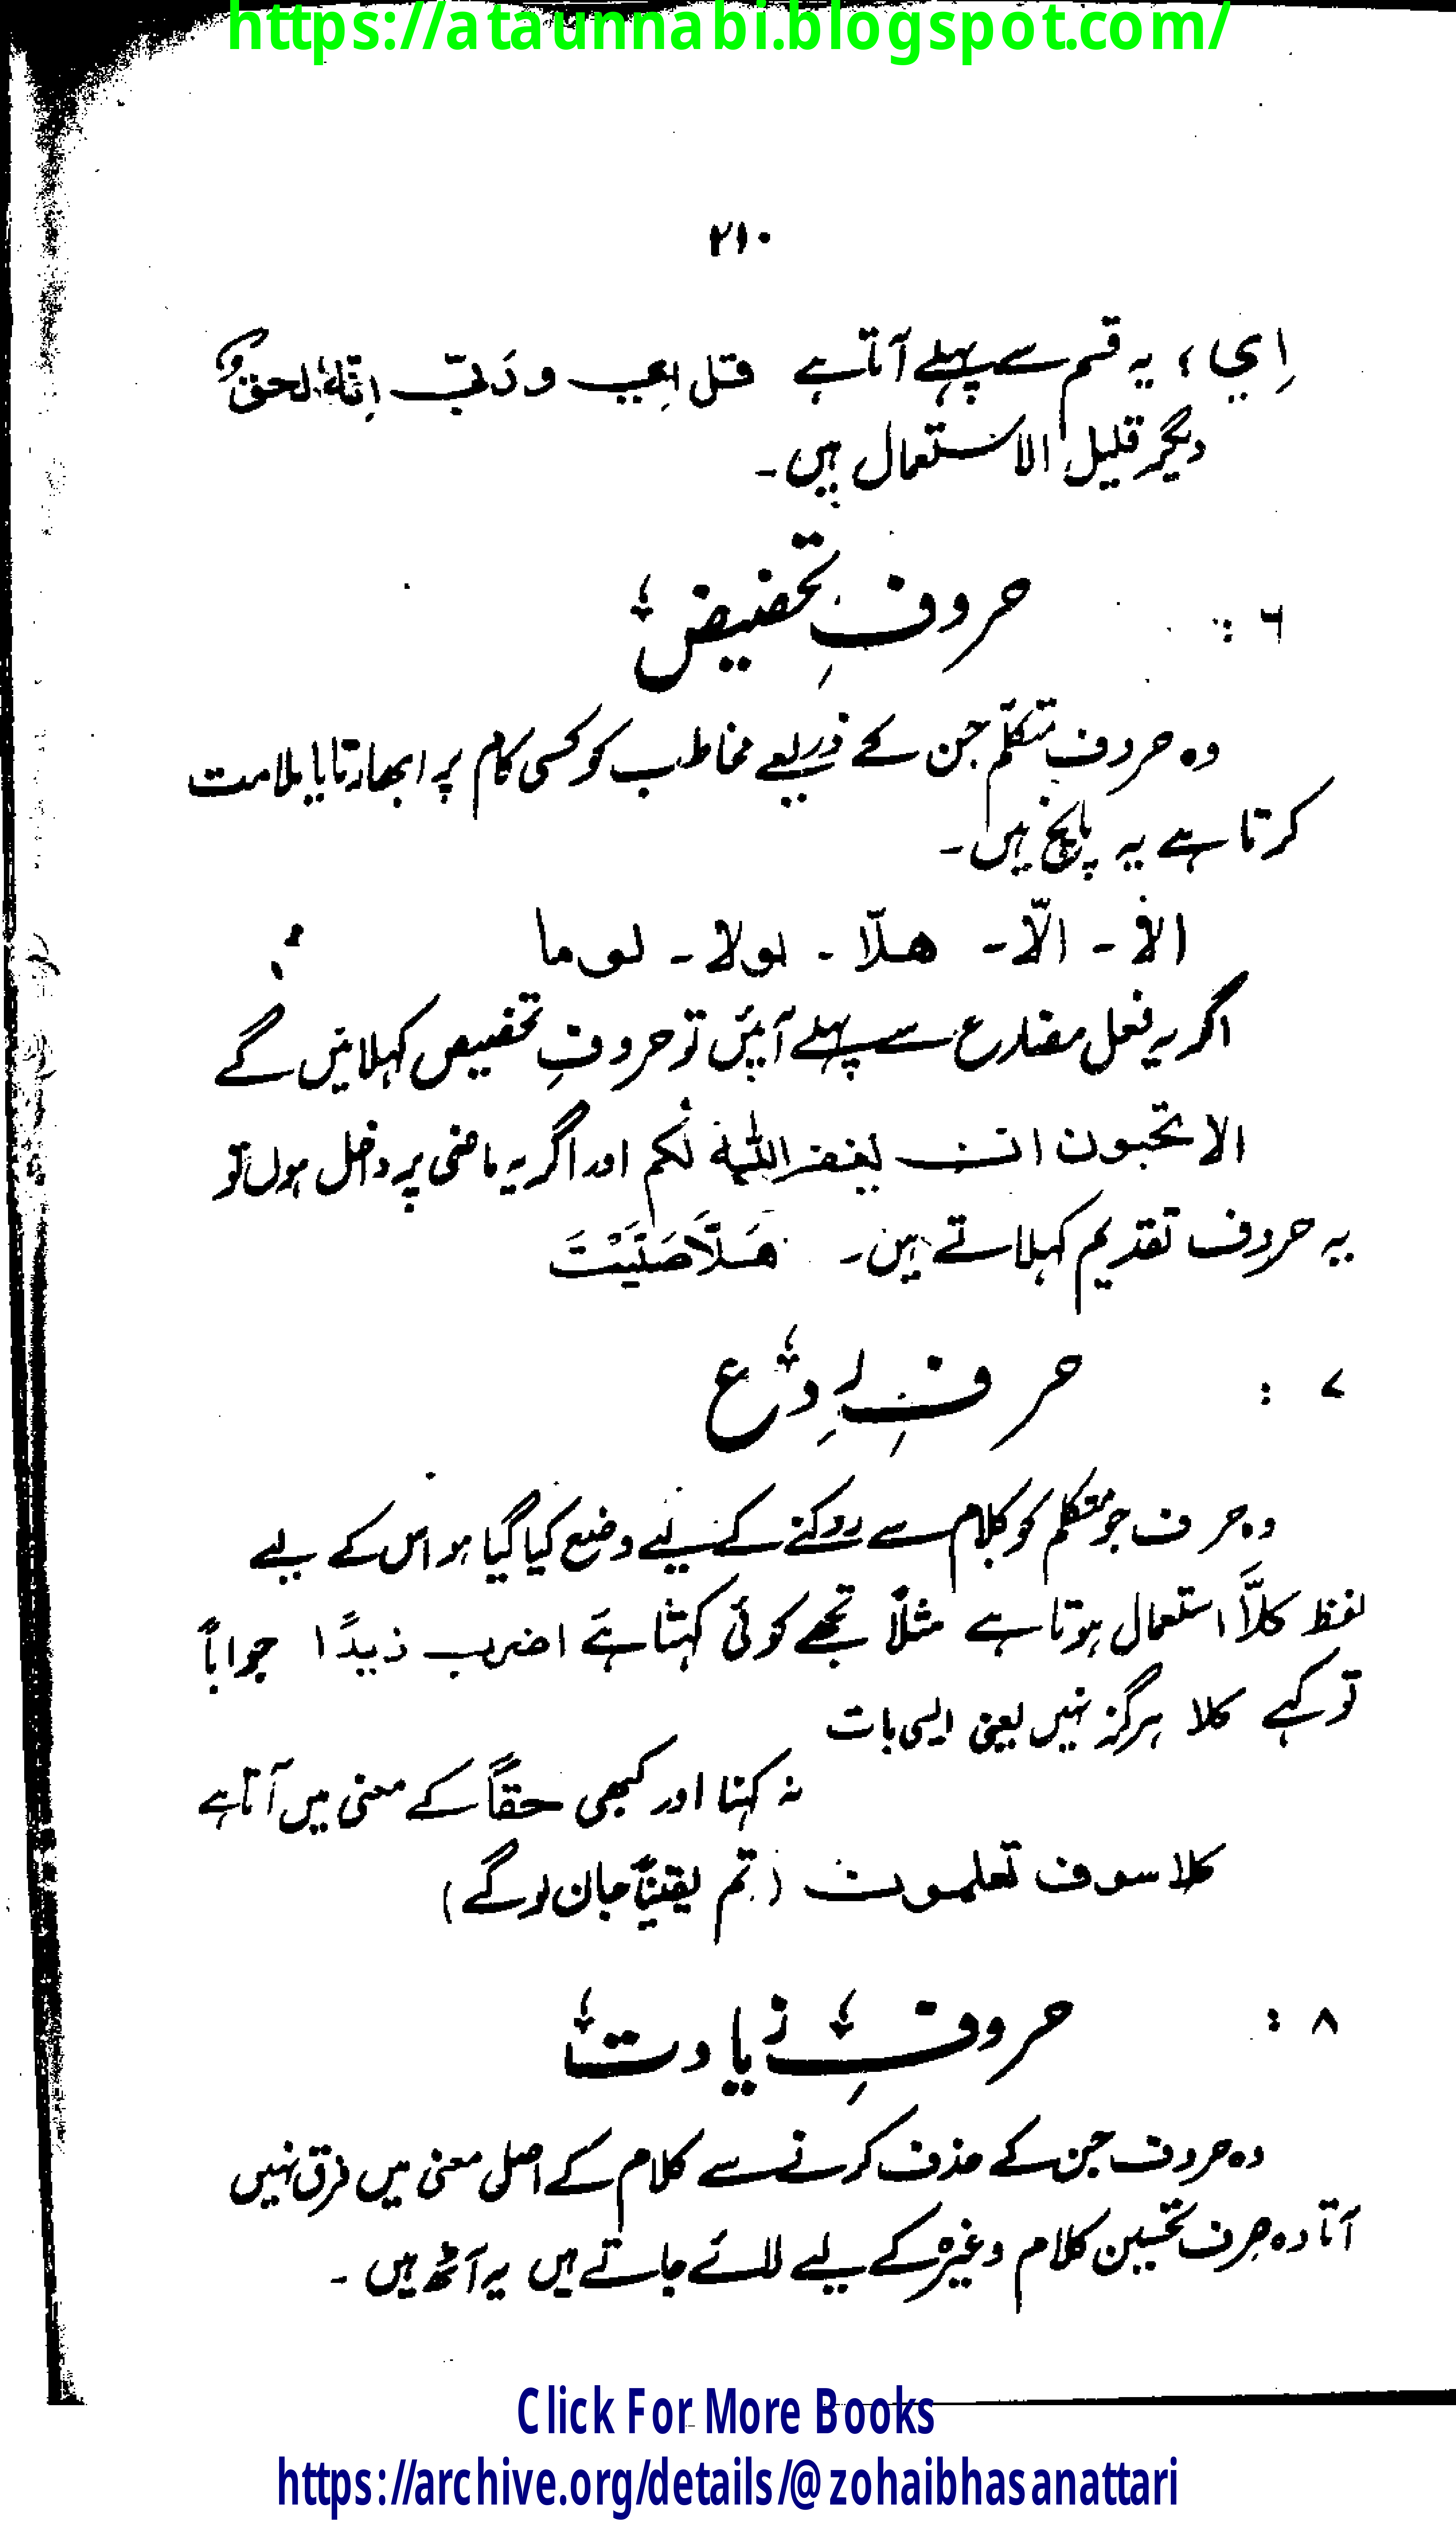 https://ataunnabi.blogspot.com/
۲۱۰
اِی ؛ یہ قسم سے پہلے آتا ہے قل اِی و رَبّی اِنّہٗ لحق
دیگر قلیل الاستعمال ہیں۔
۶ : حروفِ تحضیض
وہ حروف متکلّم جن کے ذریعے مخاطب کو کسی کام پر ابھارتا یا ملامت
کرتا ہے یہ پانچ ہیں۔
الا ۔ الّا ۔ ھلّا ۔ لولا ۔ لوما
اگر یہ فعل مضارع سے پہلے آئیں تو حروفِ تحضیض کہلائیں گے
الا تحبون ان یغفر اللہ لکم اور اگر یہ ماضی پر داخل ہوں تو
یہ حروف تقدیم کہلاتے ہیں۔ ھَلَّا صَلَّیْتَ
۷ : حرفِ ردع
وہ حرف جو متکلم کو کلام سے روکنے کے لیے وضع کیا گیا ہو اس کے لیے
لفظ کلاَّ استعمال ہوتا ہے مثلاً تجھے کوئی کہتا ہے اضرب زیدًا جواباً
تو کہے کلا ہرگز نہیں یعنی ایسی بات
نہ کہنا اور کبھی حقاً کے معنی میں آتا ہے
کلا سوف تعلمون (تم یقیناً جان لو گے)
۸ : حروفِ زیادت
وہ حروف جن کے حذف کرنے سے کلام کے اصل معنی میں فرق نہیں
آتا وہ صرف تحسین کلام وغیرہ کے لیے لائے جاتے ہیں یہ آٹھ ہیں۔
Click For More Books
https://archive.org/details/@zohaibhasanattari